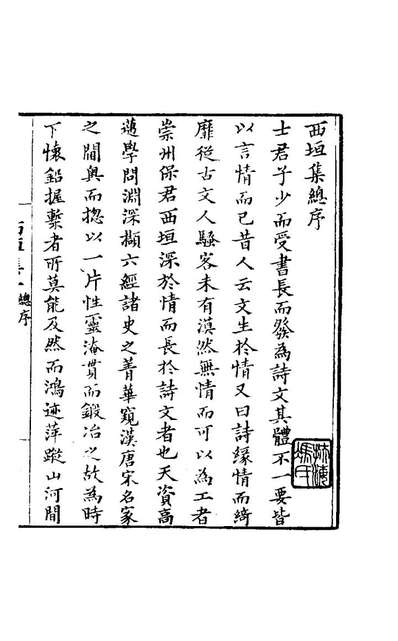 西垣集總序
士君子少而受書長而發為詩文其體不一要皆
以言情而已昔人云文生於情又曰詩緣情而綺
靡從古文人騷客未有漠然無情而可以為工者
崇州保君西垣深於情而長於詩文者也天資高
邁學問淵深擷六經諸史之菁華窺漢唐宋名家
之閫奧而揔以一片性靈淹貫而鍛冶之故為時
下懷鉛握槧者所莫能及然而鴻迹萍蹤山河間
西垣集 總序